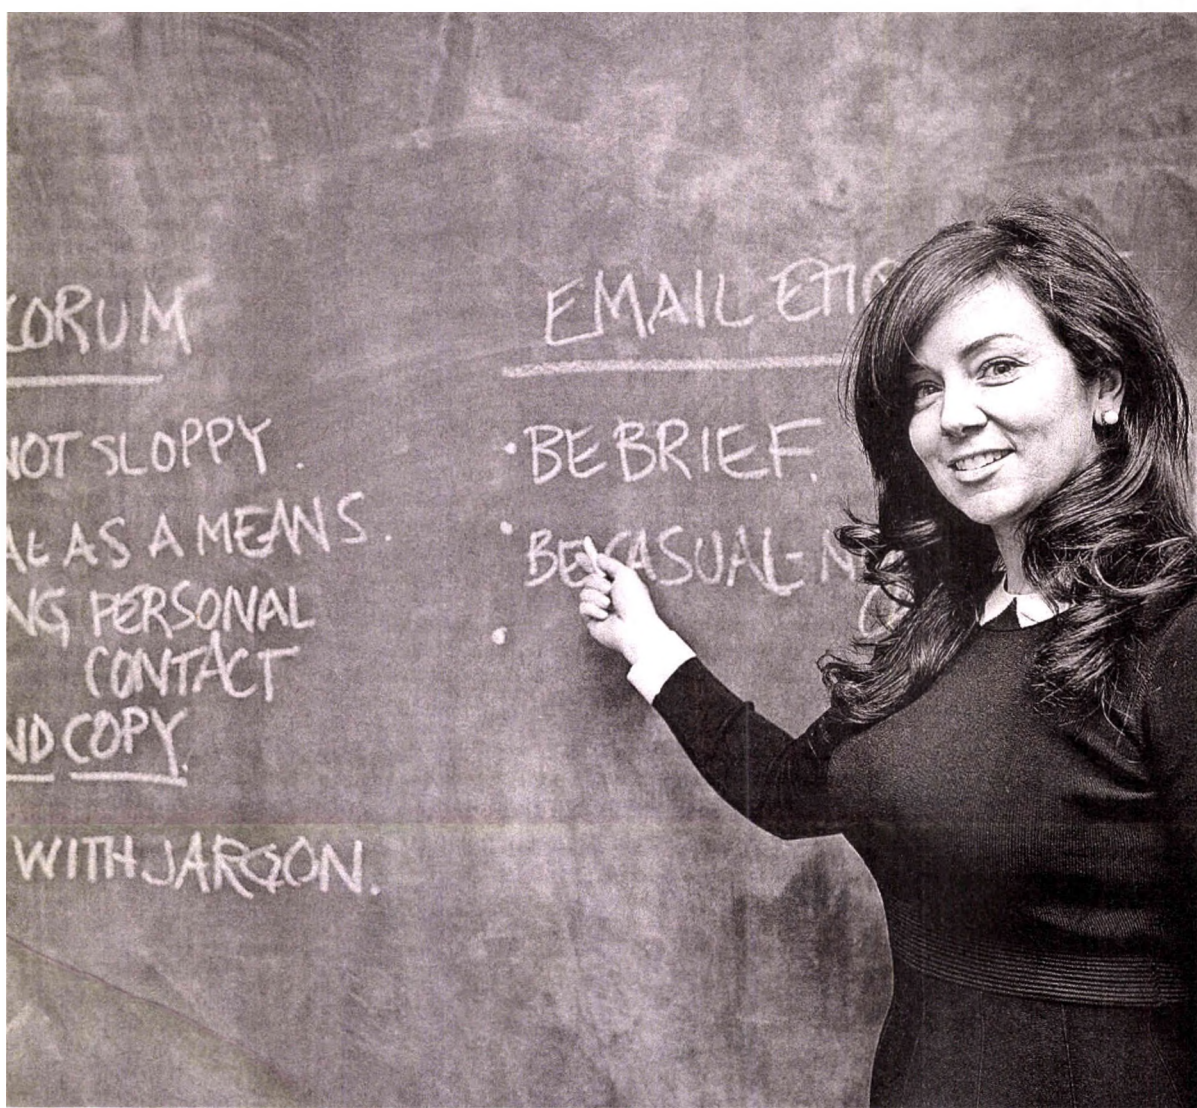 CORUM
NOT SLOPPY.
AS A MEANS.
NG PERSONAL
CONTACT
ND COPY.
WITH JARGON.
EMAIL ETIQ
• BE BRIEF.
• BE CASUAL - N
•